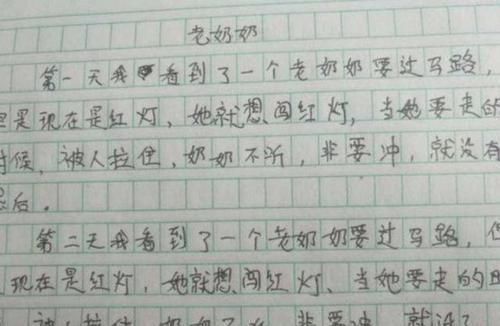 老奶奶
第一天我看到了一个老奶奶要过马路,
但是现在是红灯,她就想闯红灯,当她要走的
时候,被人拉住,奶奶不听,非要冲,就没有
然后。
第二天我看到了一个老奶奶要过马路,但
现在是红灯,她就想闯红灯、当她要走的时
被人拉住 奶奶不听 非要冲 就没了